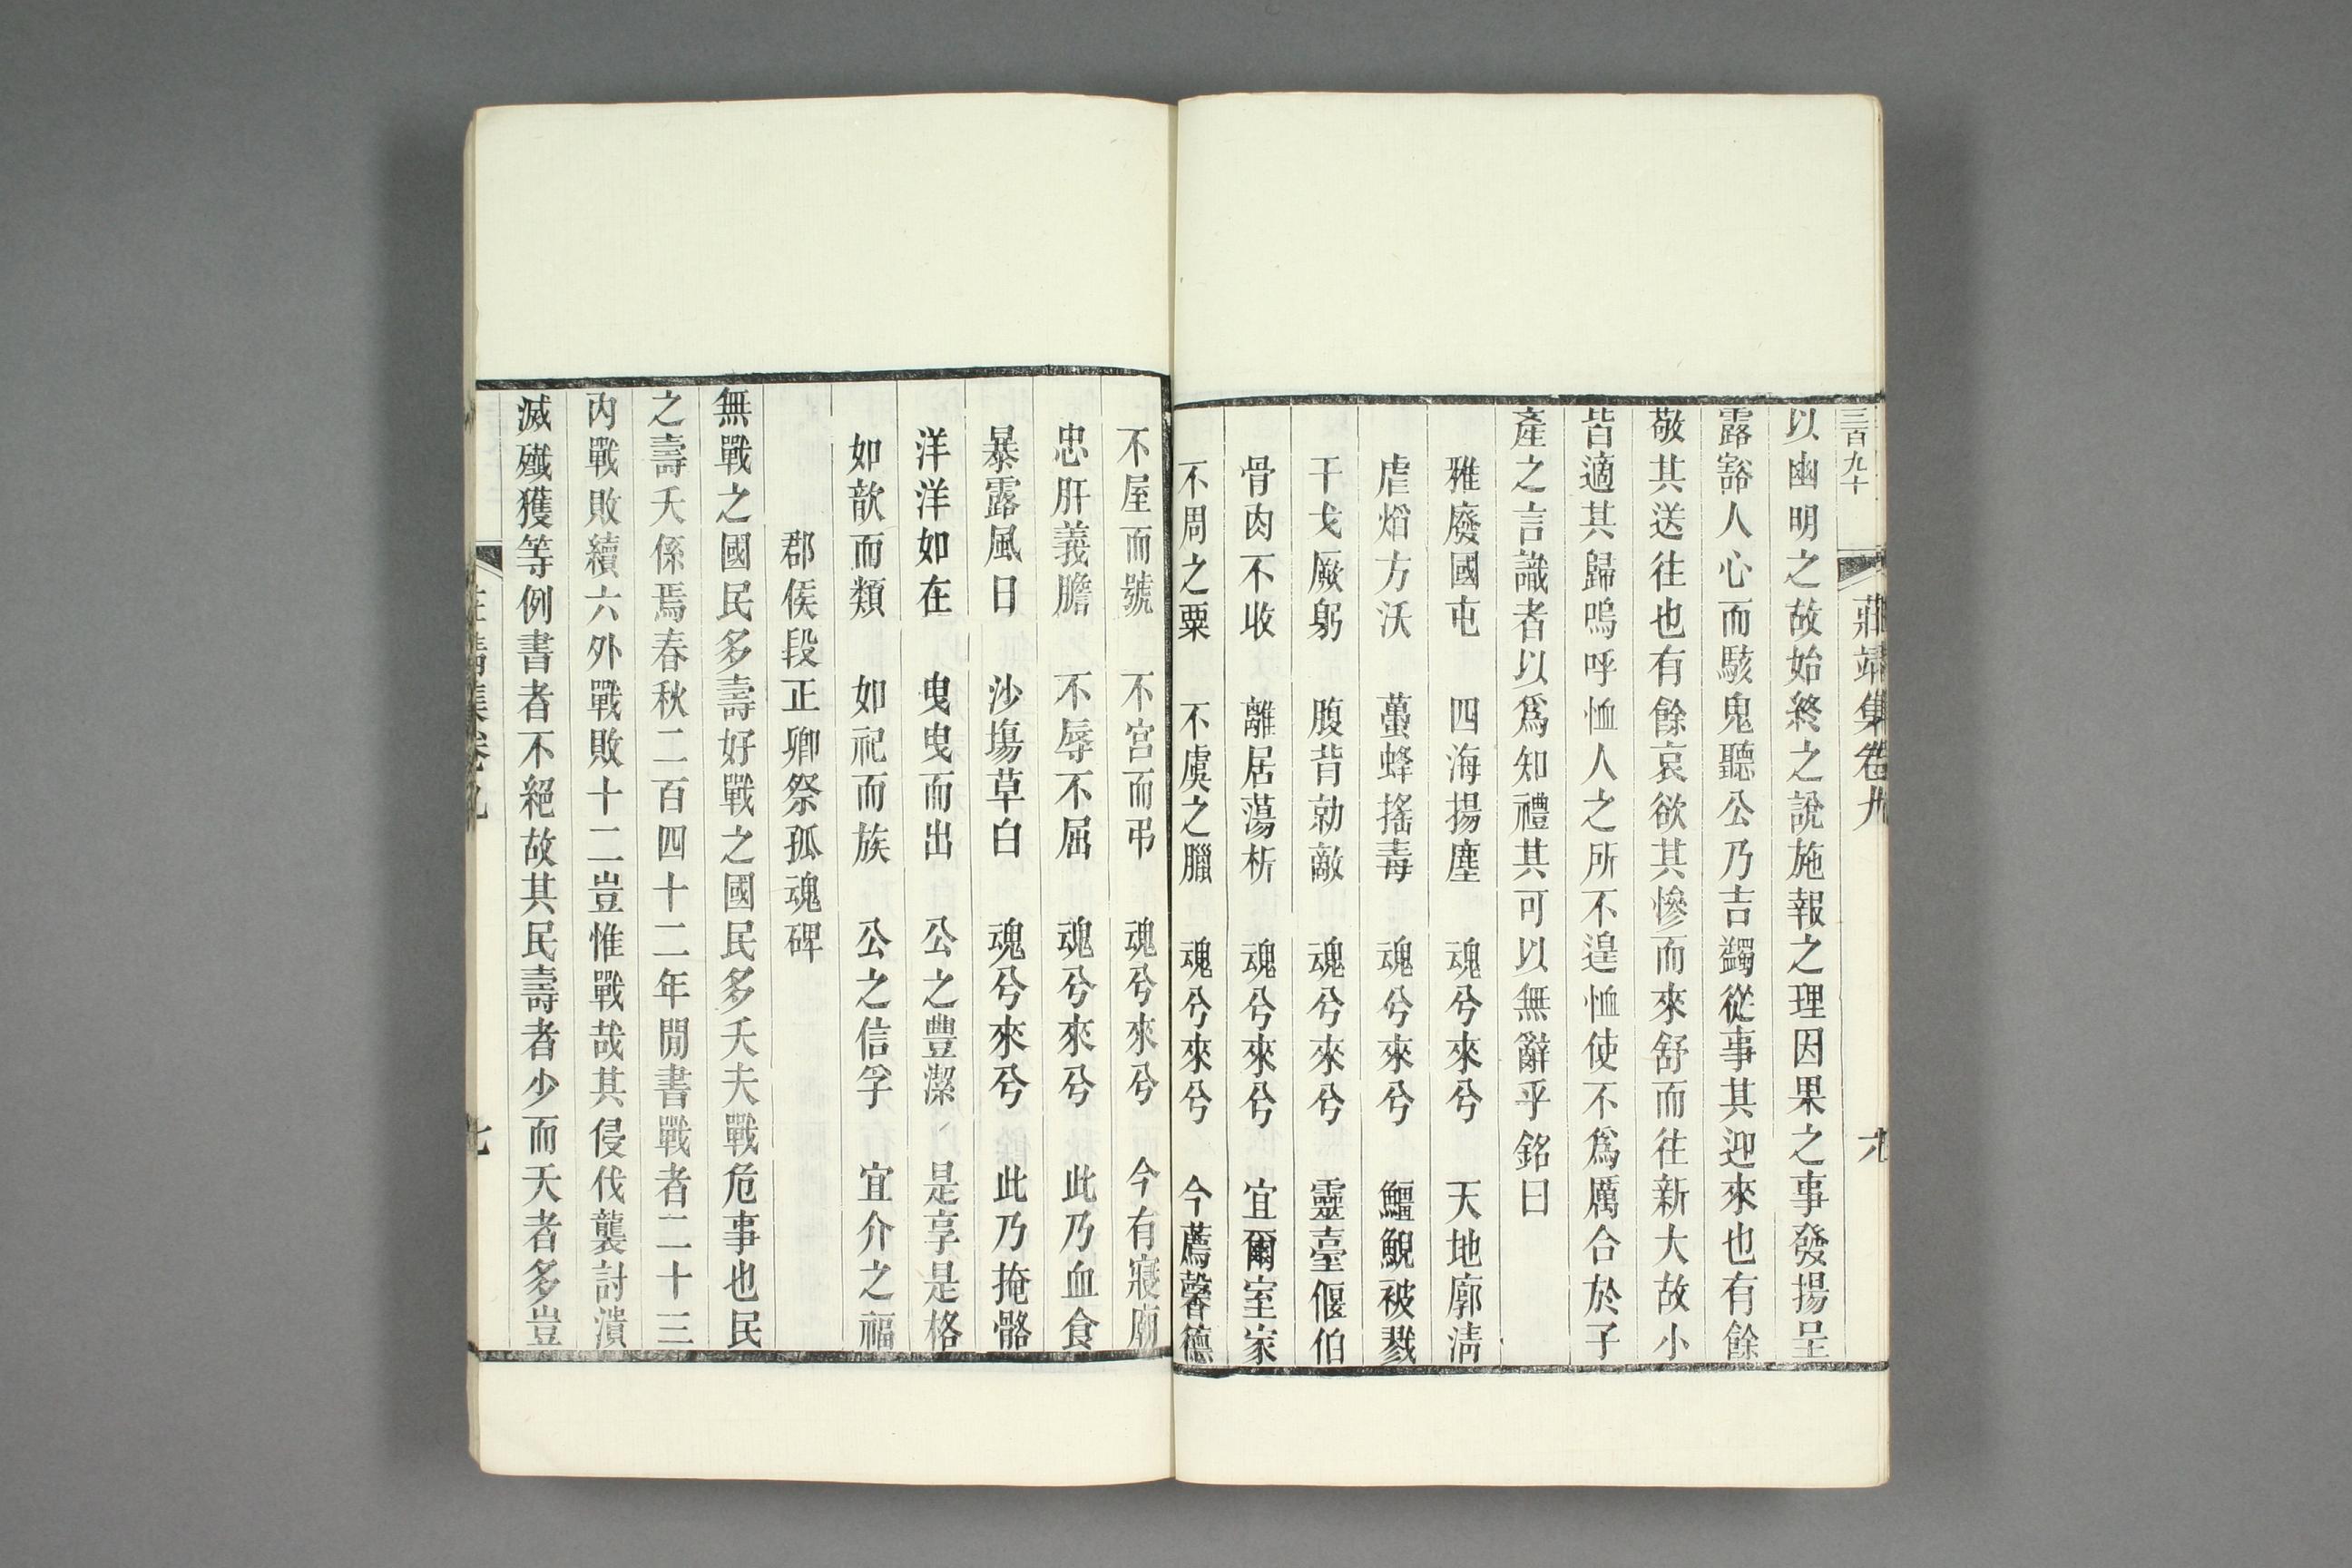 三百九十
莊靖集卷九
以幽明之故始終之說施報之理因果之事發揚呈
露豁人心而駭鬼聽公乃吉蠲從事其迎來也有餘
敬其送往也有餘哀欲其慘而來舒而往新大故小
皆適其歸嗚呼恤人之所不遑恤使不爲厲合於子
產之言識者以爲知禮其可以無辭乎銘曰
雅廢國屯　四海揚塵　魂兮來兮　天地廓淸
虐焰方沃　蠆蜂搖毒　魂兮來兮　鱷鯢被戮
干戈厥躬　腹背勍敵　魂兮來兮　靈臺偃伯
骨肉不收　離居蕩析　魂兮來兮　宜爾室家
不周之粟　不虞之臘　魂兮來兮　今薦馨德
不屋而號　不宮而弔　魂兮來兮　今有寢廟
忠肝義膽　不辱不屈　魂兮來兮　此乃血食
暴露風日　沙塲草白　魂兮來兮　此乃掩骼
洋洋如在　曳曳而出　公之豐潔　是享是格
如歆而類　如祀而族　公之信孚　宜介之福
郡侯段正卿祭孤魂碑
無戰之國民多壽好戰之國民多夭夫戰危事也民
之壽夭係焉春秋二百四十二年閒書戰者二十三
內戰敗績六外戰敗十二豈惟戰哉其侵伐襲討潰
滅殲獲等例書者不絕故其民壽者少而夭者多豈
莊靖集卷九
七